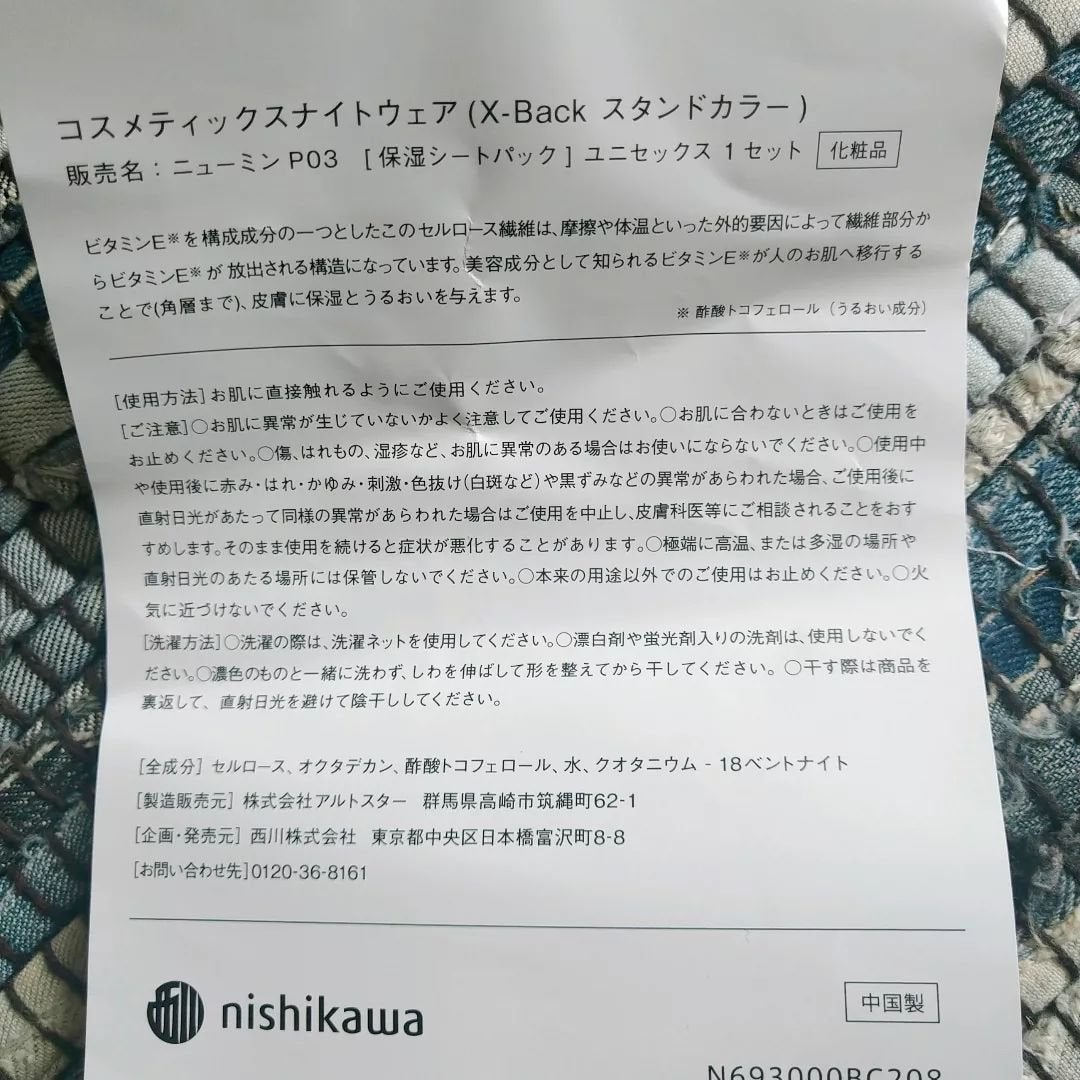 コスメティックスナイトウェア(X-Back スタンドカラー)
販売名：ニューミンP03 [保湿シートパック] ユニセックス 1セット 化粧品
ビタミンE※を構成成分の一つとしたこのセルロース繊維は、摩擦や体温といった外的要因によって繊維部分か
らビタミンE※が放出される構造になっています。美容成分として知られるビタミンE※が人のお肌へ移行する
ことで(角層まで)、皮膚に保湿とうるおいを与えます。
※ 酢酸トコフェロール（うるおい成分）
[使用方法]お肌に直接触れるようにご使用ください。
[ご注意]○お肌に異常が生じていないかよく注意してご使用ください。○お肌に合わないときはご使用を
お止めください。○傷、はれもの、湿疹など、お肌に異常のある場合はお使いにならないでください。○使用中
や使用後に赤み・はれ・かゆみ・刺激・色抜け(白斑など)や黒ずみなどの異常があらわれた場合、ご使用後に
直射日光があたって同様の異常があらわれた場合はご使用を中止し、皮膚科医等にご相談されることをおす
すめします。そのまま使用を続けると症状が悪化することがあります。○極端に高温、または多湿の場所や
直射日光のあたる場所には保管しないでください。○本来の用途以外でのご使用はお止めください。○火
気に近づけないでください。
[洗濯方法]○洗濯の際は、洗濯ネットを使用してください。○漂白剤や蛍光剤入りの洗剤は、使用しないでく
ださい。○濃色のものと一緒に洗わず、しわを伸ばして形を整えてから干してください。○干す際は商品を
裏返して、直射日光を避けて陰干ししてください。
[全成分] セルロース、オクタデカン、酢酸トコフェロール、水、クオタニウム - 18ベントナイト
[製造販売元] 株式会社アルトスター 群馬県高崎市筑縄町62-1
[企画・発売元] 西川株式会社 東京都中央区日本橋富沢町8-8
[お問い合わせ先]0120-36-8161
nishikawa
中国製
N693000BC208